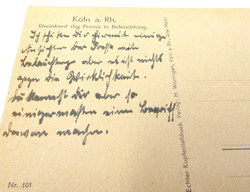 Köln a. Rh.
Rheinfront der Pressa in Beleuchtung.
Ich schicke dir hiermit einige
Ansichten der Pressa mit
Beleuchtung aber es ist nichts
gegen die Wirklichkeit.
Du kannst dir aber so
einigermaßen einen Begriff
davon machen.
Nr. 101
Echter Kupfertiefdruck